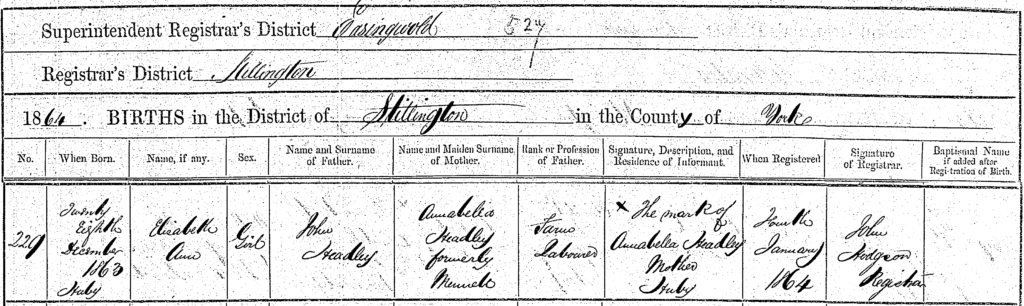 Superintendent Registrar's District Easingwold
Registrar's District Stillington
1864. BIRTHS in the District of Stillington in the County of York
No. When Born. Name, if any. Sex. Name and Surname of Father. Name and Maiden Surname of Mother. Rank or Profession of Father. Signature, Description, and Residence of Informant. When Registered Signature of Registrar. Baptismal Name if added after Registration of Birth.
229 Twenty Eighth December 1863 Huby Elizabeth Ann Girl John Headley Annabella Headley formerly Farm Labourer X The mark of Annabella Headley Mother Huby Fourth January 1864 John Hodgson Registrar